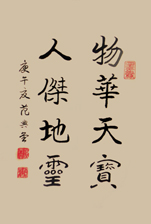 物華天寶
人傑地靈
庚午夏范典堂